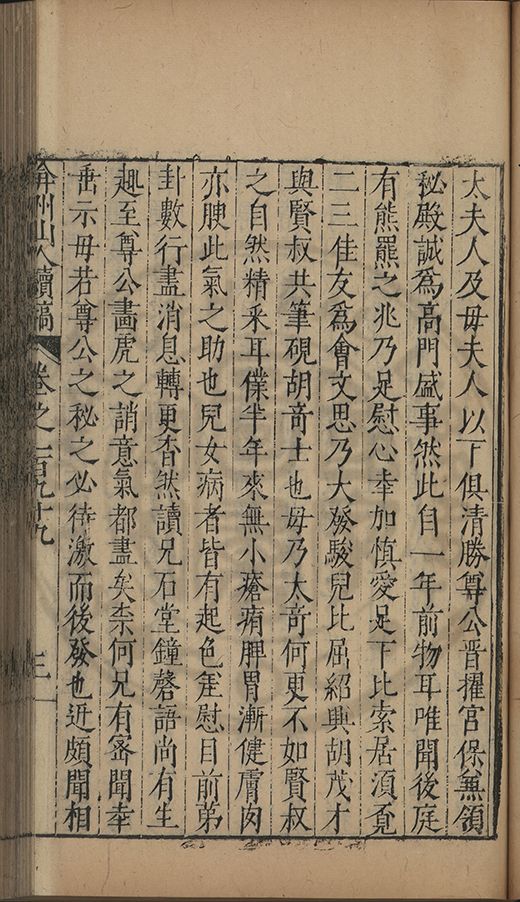 太夫人及毋夫人以下俱清勝尊公晋擢宮保兼領
秘殿誠爲高門盛事然此自一年前物耳唯聞後庭
有熊羆之兆乃足慰心幸加慎愛足下比索居湏覔
二三佳友爲會文思乃大發駿兒比屈紹興胡茂才
與賢叔共筆硯胡奇士也毋乃太奇何更不如賢叔
之自然精采耳僕半年來無小瘡痏脾胃漸健膚肉
亦腴此氣之助也兒女病者皆有起色差慰目前苐
卦數行盡消息轉更杳然讀兄石堂鐘磬語尚有生
趣至尊公畫虎之誚意氣都盡矣柰何兄有密聞幸
垂示毋若尊公之秘之必待激而後發也近頗聞相
弇州山人續稿 卷之一百九十九 三